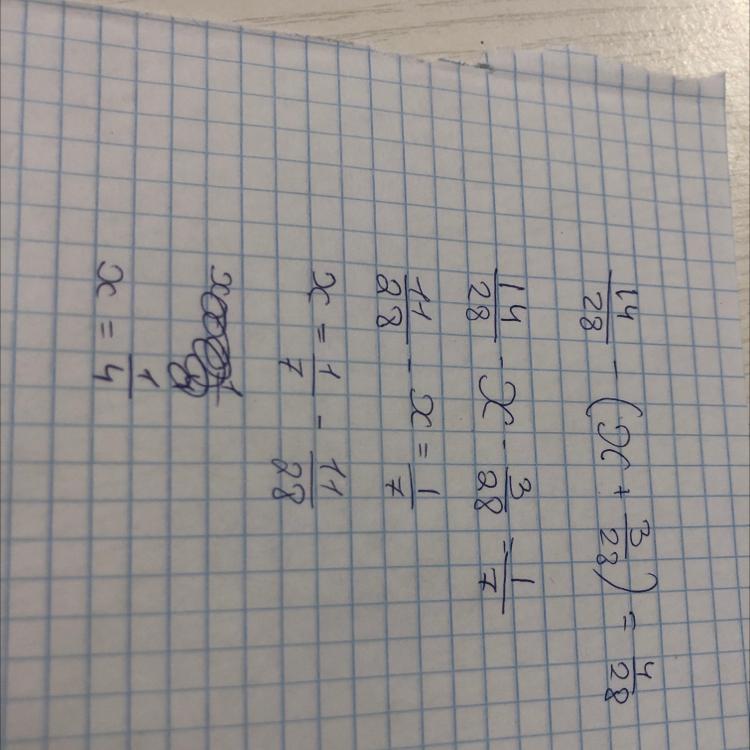 14/28 - (x + 3/28) = 4/28
14/28 - x - 3/28 = 1/7
11/28 - x = 1/7
x = 1/7 - 11/28
x = 1/4